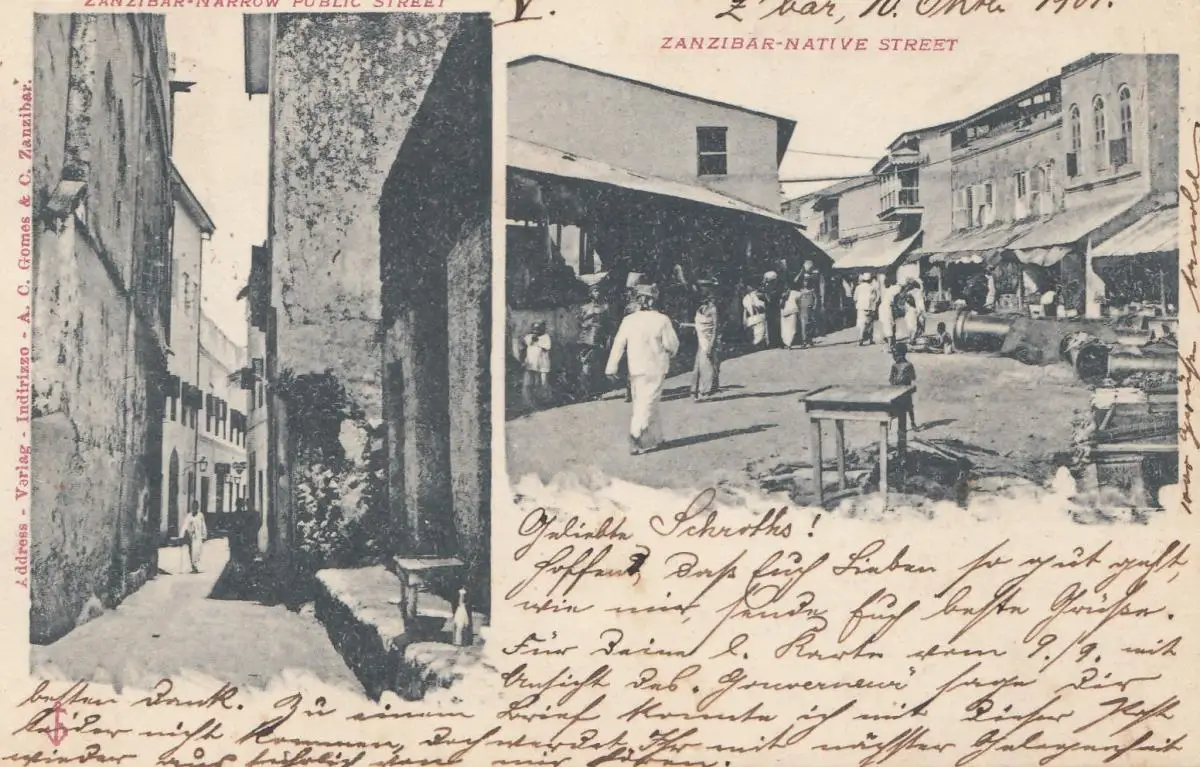 ZANZIBAR-NARROW PUBLIC STREET
V.
Z'bar, 10. Oktb 1901.
ZANZIBAR-NATIVE STREET
Address - Verlag - Indirizzo - A. C. Gomes & C. Zanzibar.
Geliebte Schroths!
Hoffend, daß Euch Lieben so gut geht,
wie mir, sende Euch beste Grüße.
Für Deine l. Karte vom 9./9. mit
Ansicht des. Gouverneur sage Dir
besten Dank. Zu einem Brief konnte ich mit dieser Post
leider nicht kommen, doch werdet Ihr mit nächster Gelegenheit
wieder von mir hören.